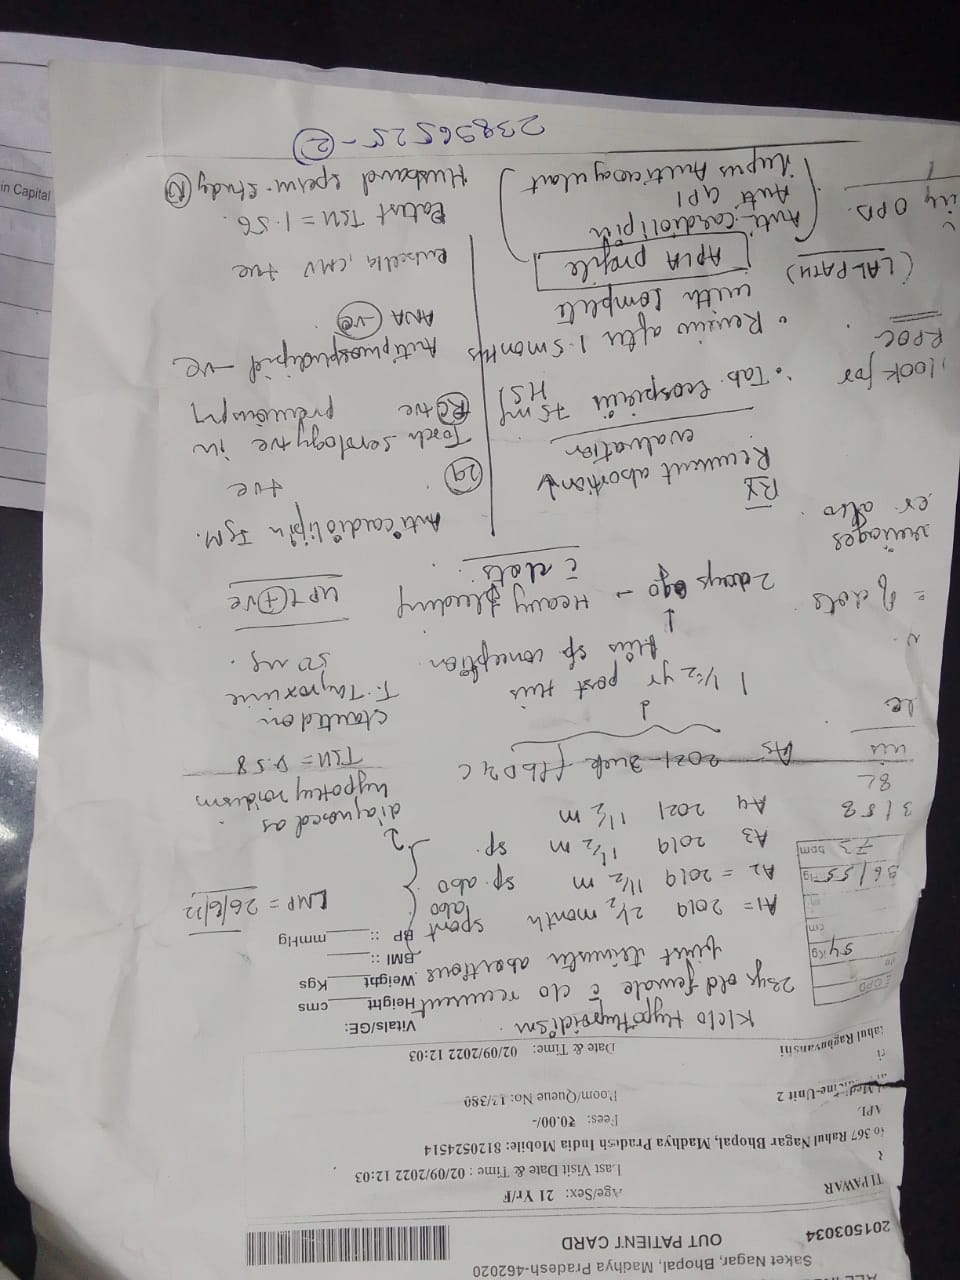 Saket Nagar, Bhopal, Madhya Pradesh-462020
OUT PATIENT CARD
201503034
TI PAWAR
Age/Sex: 21 Yr/F
Last Visit Date & Time : 02/09/2022 12:03
367 Rahul Nagar Bhopal, Madhya Pradesh India Mobile: 8120524514
Fees: ₹0.00/-
Medicine-Unit 2
Room/Queue No: 13/380
ahul Raghuvanshi
Date & Time: 02/09/2022 12:03
OPD
54 kg
cm
96/55 Hg
73 bpm
K/c/o Hypothyroidism.
Vitals/GE:
Height ____ cms
Weight ____ Kgs
BMI :: ____
BP :: ____ mmHg
23 yr old female c̄ c/o recurrent
first trimester abortions
A1 = 2019 2½ month spont abo
A2 = 2019 1½ m sp. abo
A3 2019 1½ m sp.
A4 2021 1½ m
A5 2021
LMP = 26/6/22
diagnosed as
hypothyroidism
TSH = 8.58
started on
T. Thyroxine
50 mg.
1 ½ yr post this
this sp conception
2 days ago → Heavy bleeding
c̄ clots.
UPT (+)ve
= clots
er also
look for
RPOC
(LALPATH)
OPD.
Rx
Recurrent abortions
evaluation
• Tab. Ecospirin 75 mg
HS
• Review after 1.5 months
with complete
APLA profile
Anti-cardiolipin
Anti GPI
Lupus Anticoagulant
Anticardiolipin IgM.
+ve
Torch serology +ve in
previously
Antiphospholipid -ve
ANA (-ve)
Rubella, CMV +ve
Latest TSH = 1.56.
Husband sperm study (N)
23896525 - (2)
in Capital